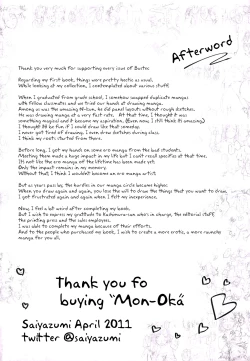 Afterword
Thank you very much for supporting every issue of
Regarding my first book, things were pretty hectic as usual.
While looking at my collection, I contemplated about various stuff.
When I graduated from grade school, I somehow swapped duplicate mangas
with fellow classmates and we tried our hands at drawing manga.
Among us was the amazing N-kun, he did panel layouts without rough sketches.
He was drawing manga at a very fast rate. At that time, I thought it was
something magical and it became my aspiration. (Even now, I still think its amazing)
I thought I'd be fun if I could draw like that someday.
I never got tired of drawing, I even drew sketches during class.
I think my roots started from there.
Before long, I got my hands on some ero manga from the bad students.
Meeting them made a huge impact in my life but I can't recall specifics at that time.
Its not like the ero mangas at the lifetime has been made yet.
Only the impact remains in my memory.
Without that, I think I wouldn't become an ero manga artist.
But as years pass by, the hurdles in our manga circle became higher.
When you draw again and again, you lose the will to draw the things that you want to draw.
I got frustrated again and again when I felt my inexperience.
Now, I feel a bit weird after completing my book.
But I wish to express my gratitude to who's in charge, the editorial staff,
the printing press and the sales employees.
I was able to complete my manga because of their efforts.
And to the people who purchased my book, I wish to create a more erotic, a more raunchy
manga for you all.
Thank you fo
buying "Mon-Oká
Saiyazumi April 2011
twitter @saiyazumi